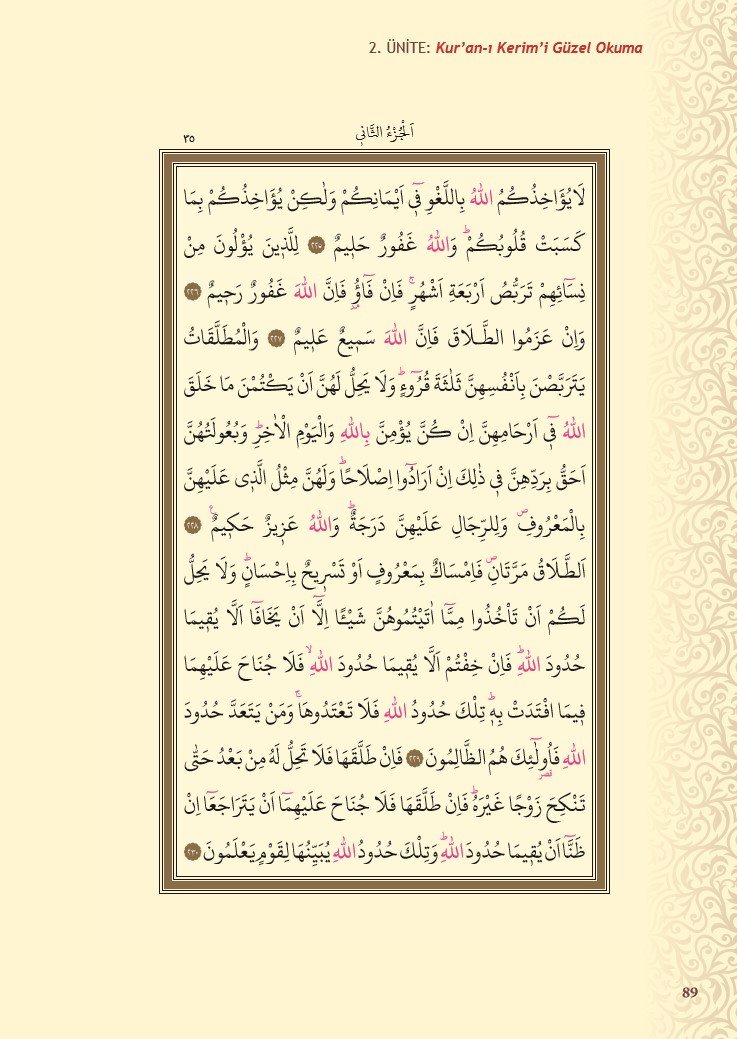 2. ÜNİTE: Kur’an-ı Kerim’i Güzel Okuma
اَلْجُزْءُ الثَّانٖي
٣٥
لَا يُؤَاخِذُكُمُ اللّٰهُ بِاللَّغْوِ فٖٓي اَيْمَانِكُمْ وَلٰكِنْ يُؤَاخِذُكُمْ بِمَا
كَسَبَتْ قُلُوبُكُمْؕ وَاللّٰهُ غَفُورٌ حَلٖيمٌ ﴿٢٢٥﴾ لِلَّذٖينَ يُؤْلُونَ مِنْ
نِسَٓائِهِمْ تَرَبُّصُ اَرْبَعَةِ اَشْهُرٍۚ فَاِنْ فَٓاؤُ۫ فَاِنَّ اللّٰهَ غَفُورٌ رَحٖيمٌ ﴿٢٢٦﴾
وَاِنْ عَزَمُوا الطَّلَاقَ فَاِنَّ اللّٰهَ سَمٖيعٌ عَلٖيمٌ ﴿٢٢٧﴾ وَالْمُطَلَّقَاتُ
يَتَرَبَّصْنَ بِاَنْفُسِهِنَّ ثَلٰثَةَ قُرُٓوءٍؕ وَلَا يَحِلُّ لَهُنَّ اَنْ يَكْتُمْنَ مَا خَلَقَ
اللّٰهُ فٖٓي اَرْحَامِهِنَّ اِنْ كُنَّ يُؤْمِنَّ بِاللّٰهِ وَالْيَوْمِ الْاٰخِرِؕ وَبُعُولَتُهُنَّ
اَحَقُّ بِرَدِّهِنَّ فٖي ذٰلِكَ اِنْ اَرَادُٓوا اِصْلَاحًاؕ وَلَهُنَّ مِثْلُ الَّذٖي عَلَيْهِنَّ
بِالْمَعْرُوفِࣕ وَلِلرِّجَالِ عَلَيْهِنَّ دَرَجَةٌؕ وَاللّٰهُ عَزٖيزٌ حَكٖيمٌ۟ ﴿٢٢٨﴾
اَلطَّلَاقُ مَرَّتَانِࣕ فَاِمْسَاكٌ بِمَعْرُوفٍ اَوْ تَسْرٖيحٌ بِاِحْسَانٍؕ وَلَا يَحِلُّ
لَكُمْ اَنْ تَأْخُذُوا مِمَّٓا اٰتَيْتُمُوهُنَّ شَيْـًٔا اِلَّٓا اَنْ يَخَافَٓا اَلَّا يُقٖيمَا
حُدُودَ اللّٰهِؕ فَاِنْ خِفْتُمْ اَلَّا يُقٖيمَا حُدُودَ اللّٰهِۙ فَلَا جُنَاحَ عَلَيْهِمَا
فٖيمَا افْتَدَتْ بِهٖؕ تِلْكَ حُدُودُ اللّٰهِ فَلَا تَعْتَدُوهَاۚ وَمَنْ يَتَعَدَّ حُدُودَ
اللّٰهِ فَاُو۬لٰٓئِكَ هُمُ الظَّالِمُونَ ﴿٢٢٩﴾ فَاِنْ طَلَّقَهَا فَلَا تَحِلُّ لَهُ مِنْ بَعْدُ حَتّٰى
تَنْكِحَ زَوْجًا غَيْرَهُؕ فَاِنْ طَلَّقَهَا فَلَا جُنَاحَ عَلَيْهِمَٓا اَنْ يَتَرَاجَعَٓا اِنْ
ظَنَّٓا اَنْ يُقٖيمَا حُدُودَ اللّٰهِؕ وَتِلْكَ حُدُودُ اللّٰهِ يُبَيِّنُهَا لِقَوْمٍ يَعْلَمُونَ ﴿٢٣٠﴾
89